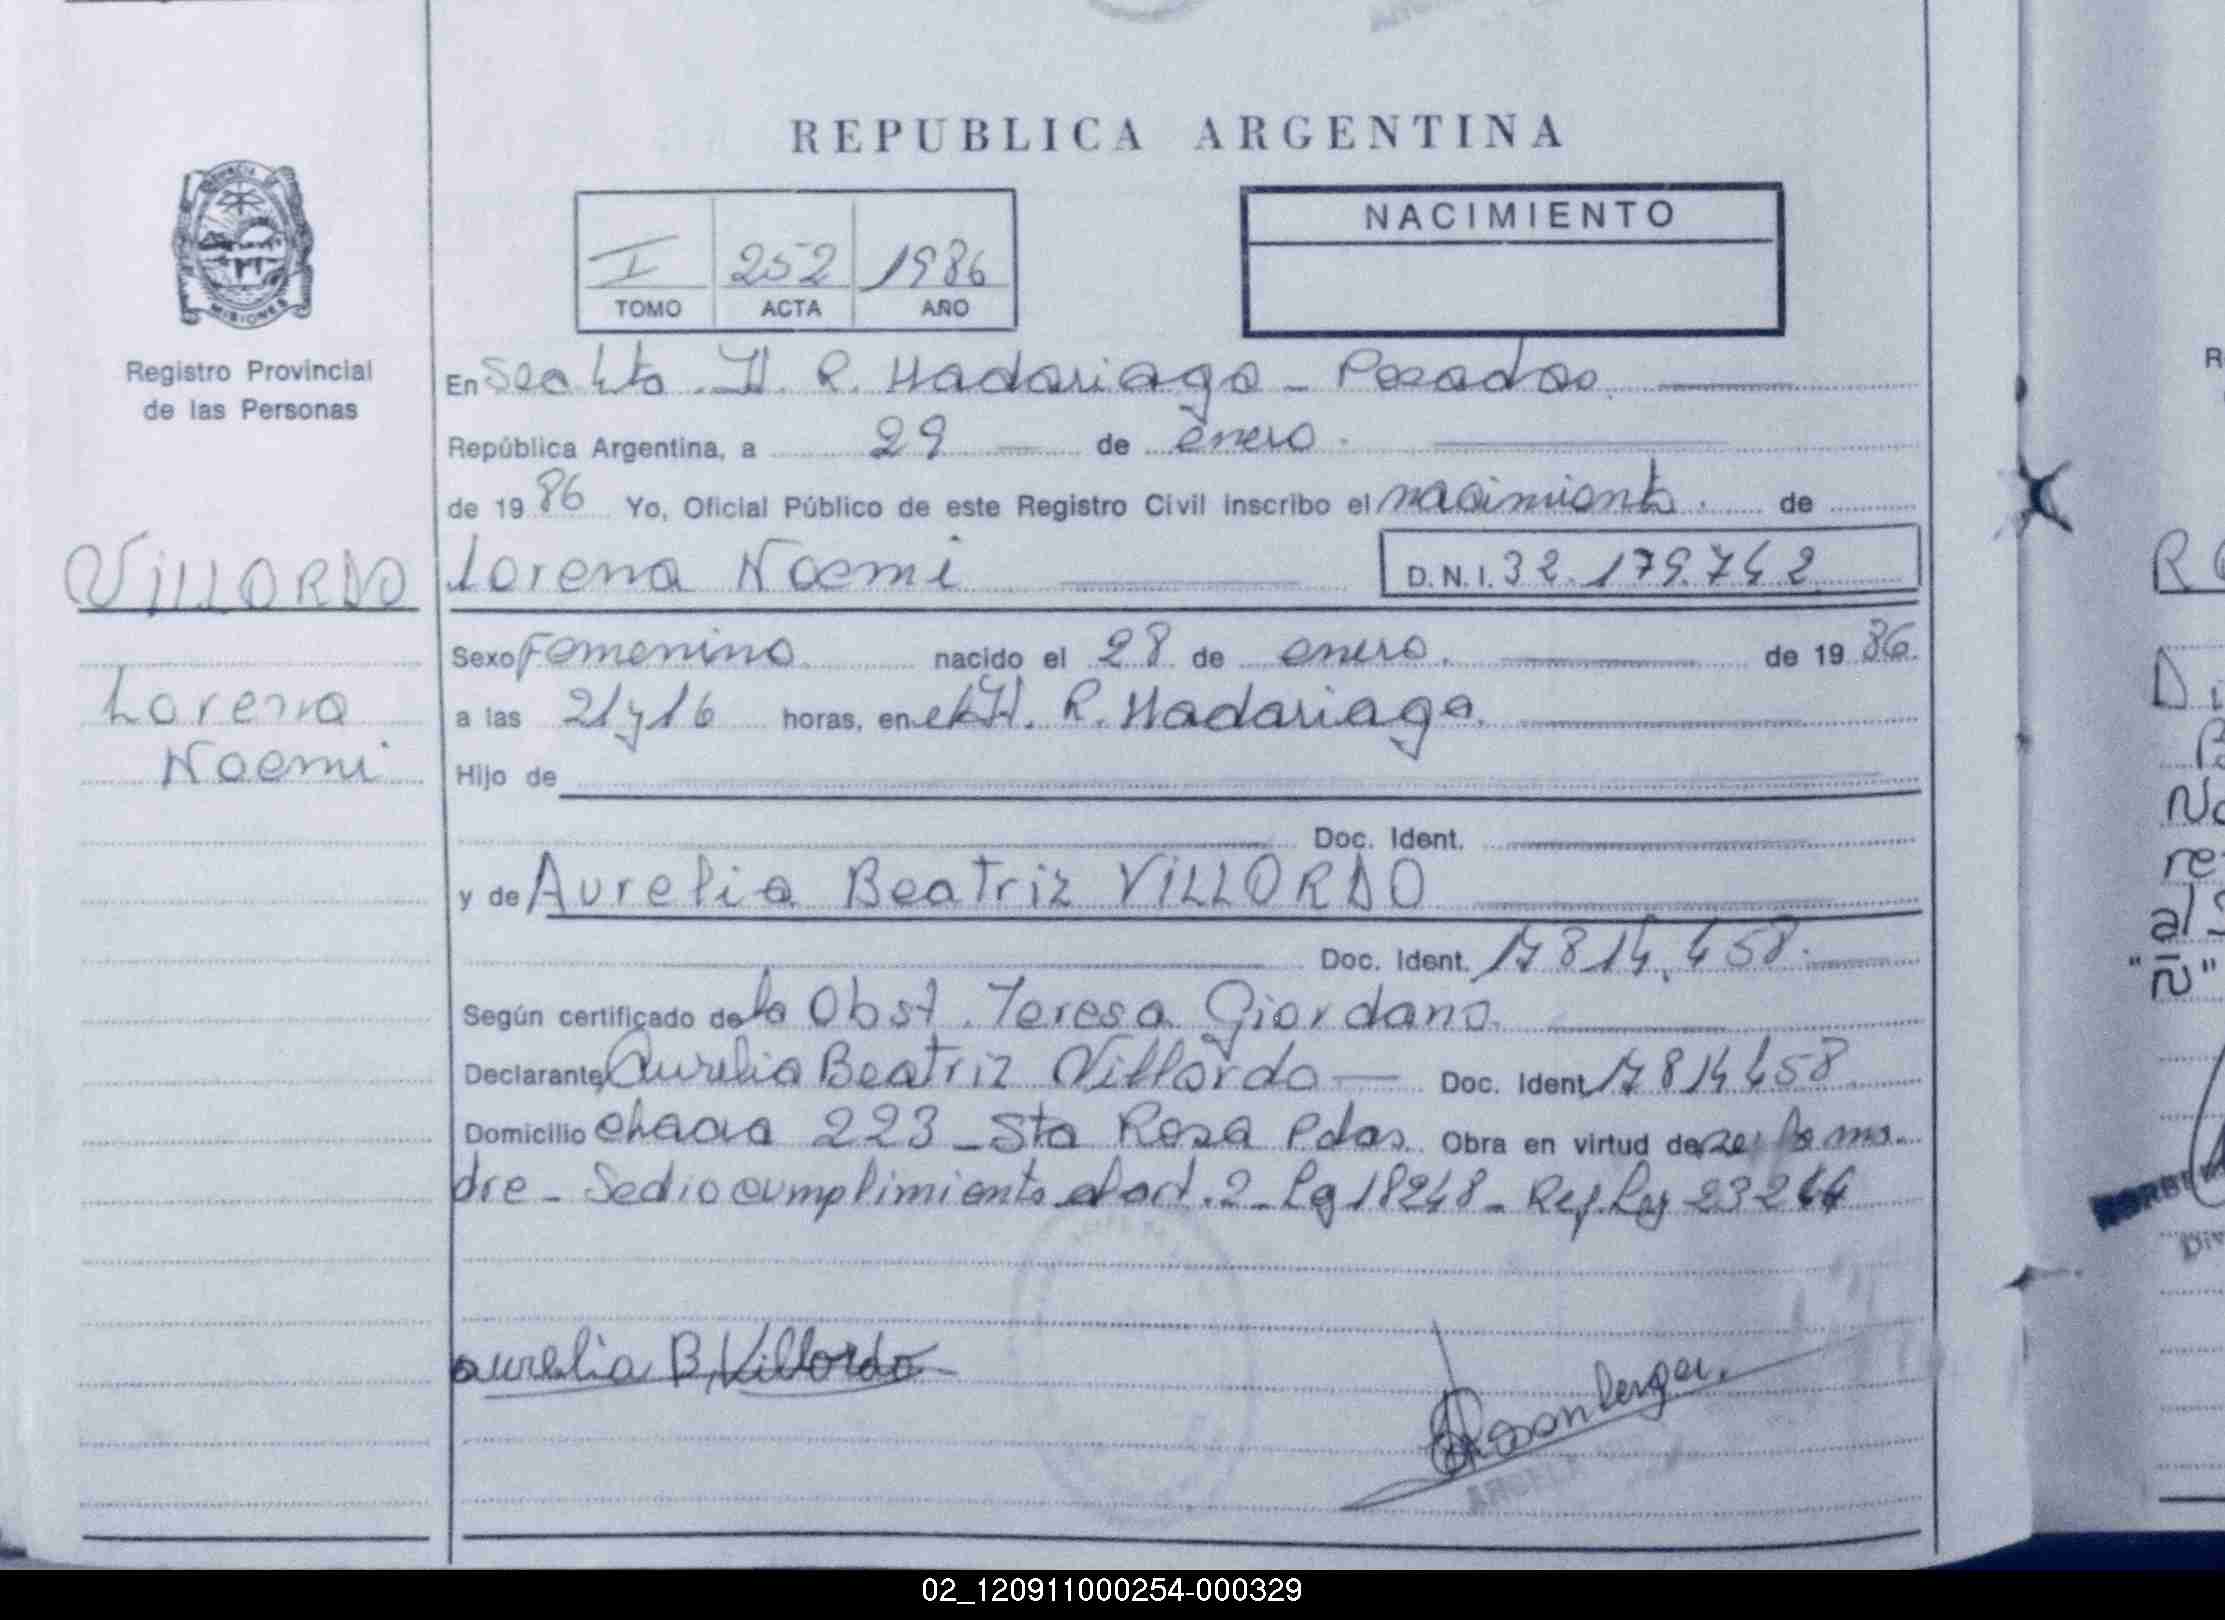 REPUBLICA ARGENTINA
NACIMIENTO
I 252 1986
TOMO ACTA AÑO
Registro Provincial
de las Personas
MISIONES
En Secc 4ta. H. R. Madariaga - Posadas.
República Argentina, a 29 de enero.
de 1986 Yo, Oficial Público de este Registro Civil inscribo el nacimiento. de
VILLORDO
Lorena Noemi
Lorena Noemi D.N.I. 32.179.742
Sexo Femenino. nacido el 28 de enero. de 1986.
a las 21 y 16 horas, en el H. R. Madariaga.
Hijo de
Doc. Ident.
y de Aurelia Beatriz VILLORDO
Doc. Ident. 17814.458.
Según certificado de la Obst. Teresa Giordano.
Declarante Aurelia Beatriz Villordo Doc. Ident. 17814458
Domicilio chacra 223 - Sta Rosa Pdas. Obra en virtud de ser la ma-
dre - Se dio cumplimiento al art. 2 - Ley 18248 - Ref. Ley 23264
aurelia B. Villordo
Rosenberger
02_120911000254-000329